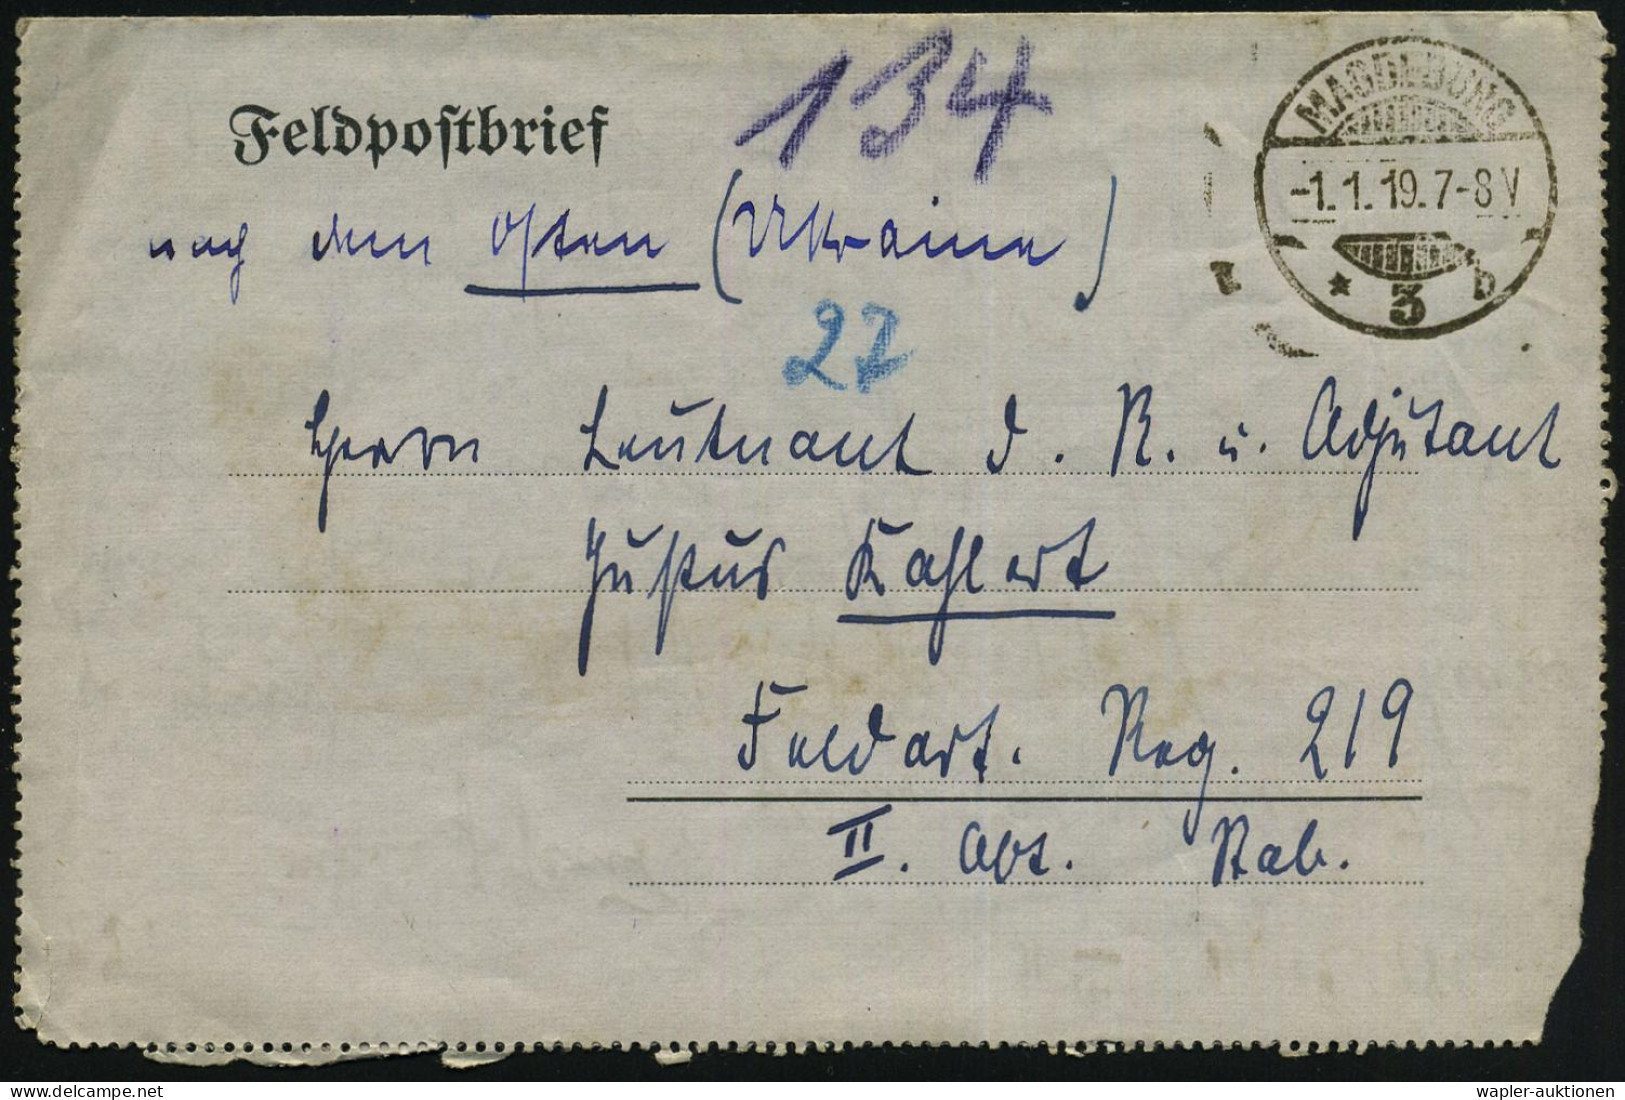 134
Feldpostbrief
MAGDEBURG
-1.1.19.7-8V
* 3 b
nach dem Osten (Ukraine)
27
Herrn Leutnant d. R. u. Adjutant
Justus Kahlert
Feldart. Reg. 219
II. Abt. Stab.
wapler-auktionen